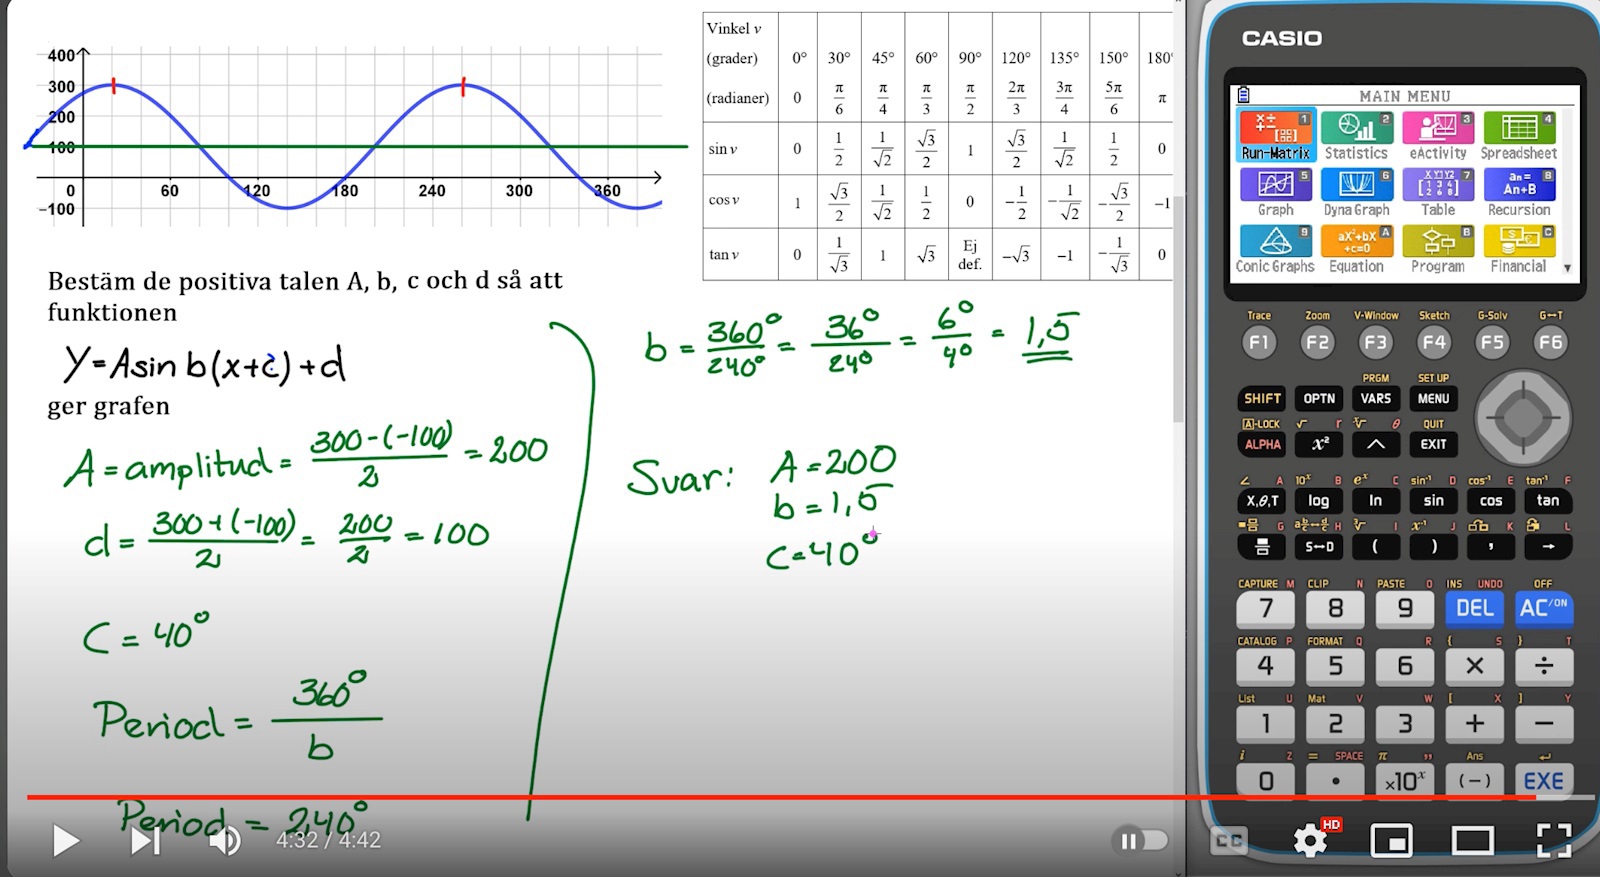 400
300
200
100
0 60 120 180 240 300 360
−100
Vinkel v
(grader) 0° 30° 45° 60° 90° 120° 135° 150° 180°
(radianer) 0 π/6 π/4 π/3 π/2 2π/3 3π/4 5π/6 π
sin v 0 1/2 1/√2 √3/2 1 √3/2 1/√2 1/2 0
cos v 1 √3/2 1/√2 1/2 0 −1/2 −1/√2 −√3/2 −1
tan v 0 1/√3 1 √3 Ej def. −√3 −1 −1/√3 0
Bestäm de positiva talen A, b, c och d så att
funktionen
Y=Asin b(x+c)+d
ger grafen
A = amplitud = 300-(-100)/2 = 200
d = 300+(-100)/2 = 200/2 = 100
C = 40°
Period = 360°/b
Period = 240°
b = 360°/240° = 36°/24° = 6°/4° = 1,5
Svar: A=200
b=1,5
C=40°
4:32 / 4:42
CC
HD
CASIO
MAIN MENU
Run-Matrix Statistics eActivity Spreadsheet
Graph Dyna Graph Table Recursion
Conic Graphs Equation Program Financial
Trace Zoom V-Window Sketch G-Solv G↔T
F1 F2 F3 F4 F5 F6
PRGM SET UP
SHIFT OPTN VARS MENU
A-LOCK √ r ˣ√ θ QUIT
ALPHA x² ^ EXIT
∠ A 10ˣ B eˣ C sin⁻¹ D cos⁻¹ E tan⁻¹ F
X,θ,T log ln sin cos tan
G H ³√ I x⁻¹ J K L
S↔D ( ) , →
CAPTURE M CLIP N PASTE O INS UNDO OFF
7 8 9 DEL AC/ON
CATALOG P FORMAT Q R { S } T
4 5 6 × ÷
List U Mat V W [ X ] Y
1 2 3 + −
i Z = SPACE π " Ans ↵
0 • ×10ˣ (−) EXE